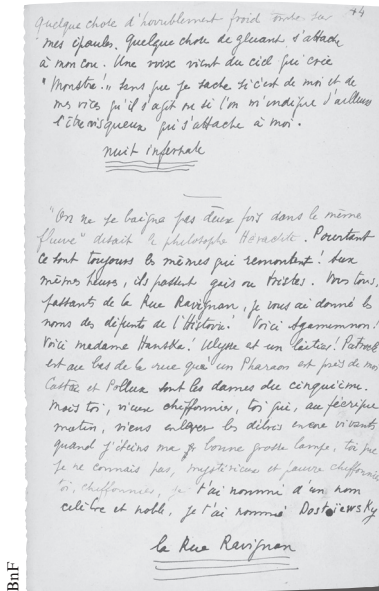 44
Quelque chose d'horriblement froid tombe sur
mes épaules. Quelque chose de gluant s'attache
à mon cou. Une voix vient du ciel qui crie
"Monstre!" sans que je sache si c'est de moi et de
mes vices qu'il s'agit ou si l'on m'indique d'ailleurs
l'être visqueux qui s'attache à moi.
nuit infernale
"On ne se baigne pas deux fois dans le même
fleuve" disait le philosophe Héraclite. Pourtant
ce sont toujours les mêmes qui remontent! Aux
mêmes heures, ils passent gais ou tristes. Vous tous,
passants de la Rue Ravignan, je vous ai donné les
noms des défunts de l'Histoire! Voici Agamemnon!
Voici madame Hanska! Ulysse est un laitier! Patrocle
est au bas de la rue qu'un Pharaon est près de moi
Castor et Pollux sont les dames du cinquième.
Mais toi, vieux chiffonnier, toi qui, au féerique
matin, viens enlever les débris encore vivants
quand j'éteins ma bonne grosse lampe, toi que
je ne connais pas, mystérieux et pauvre chiffonnier
toi, chiffonnier, je t'ai nommé d'un nom
célèbre et noble, je t'ai nommé Dostoïewsky
la Rue Ravignan
BnF